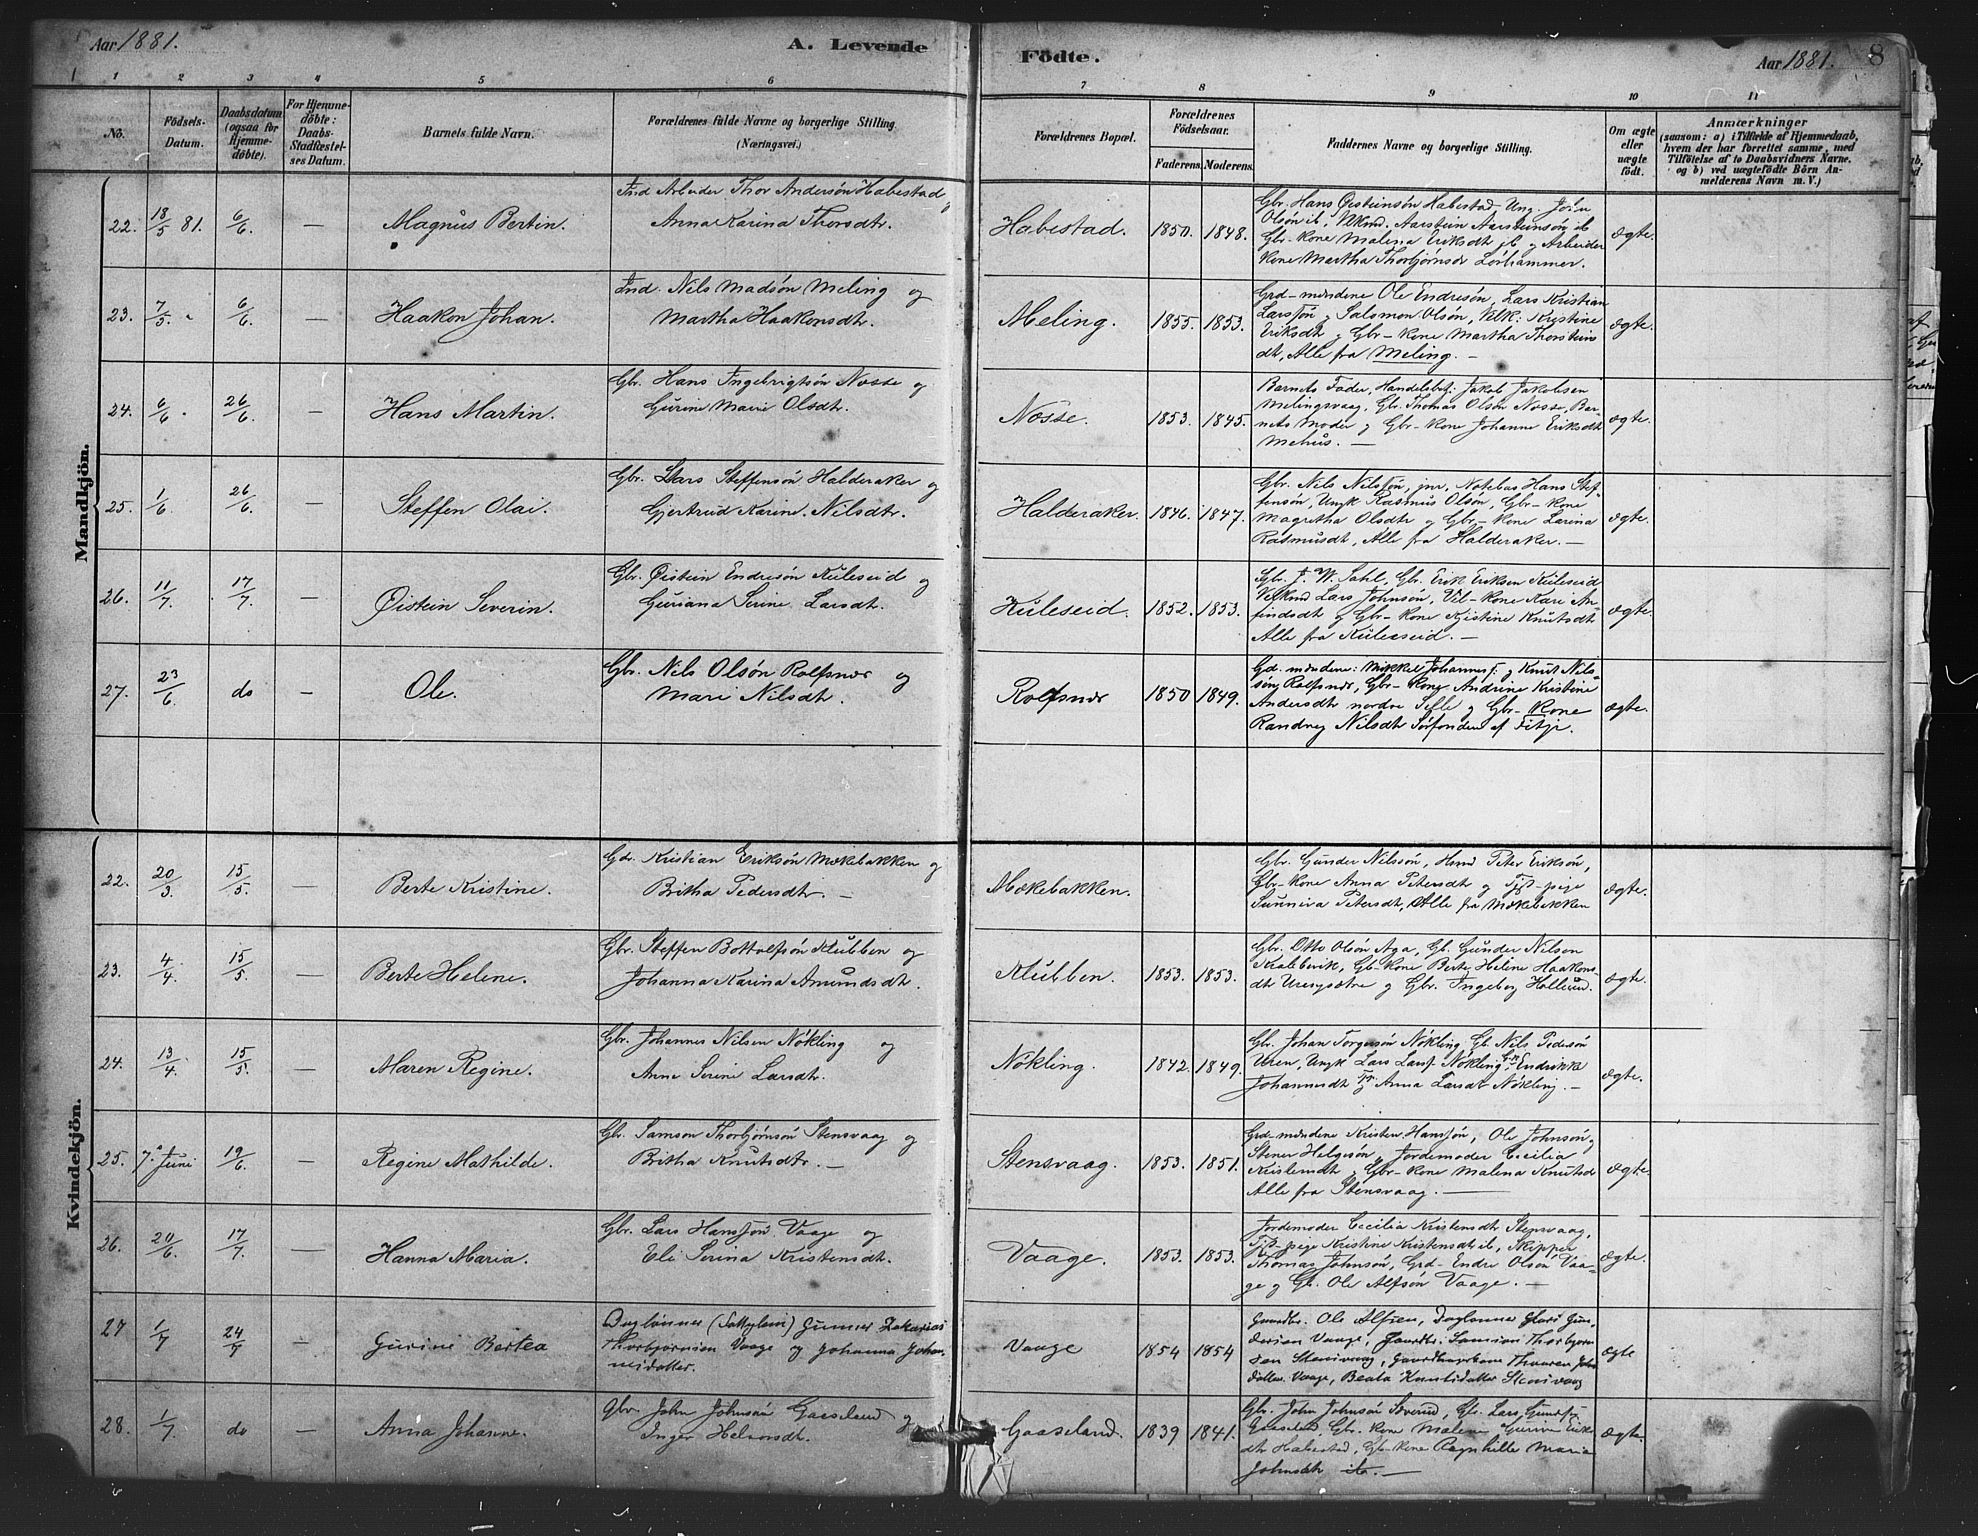 Aar 1881.
A. Levende
Födte.
Aar 1881.
8
1 2 3 4 5 6 7 8 9 10 11
No.
Födsels-
Datum.
Daabsdatum
(ogsaa for
Hjemme-
döbte).
For Hjemme-
döbte:
Daabs-
Stadfæstel-
ses Datum.
Barnets fulde Navn.
Forældrenes fulde Navne og borgerlige Stilling.
(Næringsvei.)
Forældrenes Bopæl.
Forældrenes
Födselsaar.
Faderens. Moderens.
Faddernes Navne og borgerlige Stilling.
Om ægte
eller
uægte
födt.
Anmærkninger
(saasom: a) i Tilfælde af Hjemmedaab,
hvem der har forrettet samme, med
Tilföielse af to Daabsvidners Navne.
og b) ved uægtefödte Börn An-
melderens Navn m. V.)
Mandkjön.
22. 18/5 81. 6/6 — Magnus Bertin.
Ind Arbeider Thor Andersön Habestad
Anna Karina Thorsdtr.
Habestad. 1850. 1848.
Gbr. Hans Östeinsön Habestad Ung. John
Olsön ib, Aarstein Aarsteinsön ib
Gbr-Kone Malena Eriksdt ib og Arbeider
Kone Martha Thorbjørnsdr Lørhammer.
ægte.
23. 7/5 " 6/6 — Haakon Johan.
Ind. Nils Madsön Meling og
Martha Haakonsdtr.
Meling. 1855. 1853.
Grd-mændene Ole Endresön, Lars Kristian
Larssön og Salomon Olsön, Pik: Kristine
Eriksdt og Gbr-Kone Martha Thorsteins
dt, Alle fra Meling. —
ægte.
24. 6/6 " 26/6 — Hans Martin.
Gbr. Hans Ingebrigtsön Nosse og
Gurine Marie Olsdt.
Nosse. 1853. 1845.
Barnets Fader, Handelsbetj. Jakob Jakobsen
Melingsvaag, Gbr. Thomas Olsön Nosse, Bar-
nets Moder og Gbr-Kone Johanne Eriksdt
Mehus. —
ægte.
25. 1/6 26/6 — Steffen Olai.
Gbr. Lars Steffensön Halderaker og
Gjertrud Karine. Nilsdtr.
Halderaker. 1846. 1847.
Gbr. Nils Nilssön, jnr, Notebas Hans Stef-
fensön, Ungk Rasmus Olsön, Gbr-Kone
Magretha Olsdtr og Gbr-Kone Larina
Rasmusdt, Alle fra Halderaker. —
ægte.
26. 11/7 17/7 — Øistein Severin.
Gbr. Øistein Endresön Kuleseid og
Guriana Serine Larsdt.
Kuleseid. 1852. 1853.
Gbr. J. W. Dahl, Gbr. Erik Eriksen Kuleseid
Lars Johnsön, Kone Kari An-
findsdt og Gbr-Kone Kjistine Knutsdt
Alle fra Kuleseid. —
ægte.
27. 23/6 do — Ole.
Gbr. Nils Olsön Rolfsnes og
Mari Nilsdt.
Rolfsnes 1850 1849.
Gd. mændene: Mikkel Johannes f: og Knut Nils-
sön Rolfsnes, Gbr-Kone Andrine Kristine
Andersdt nordre Selle og Gbr-Kone
Randvey Nilsdtr Sörfonden af Fitje.
ægte.
Kvindekjön.
22. 20/3 15/5 — Berte Kristine.
Gdr. Kristian Eriksön Mækebakken og
Britha Pedersdtr. —
Mækebakken.
Gbr. Gunder Nilssön, Hmd Peter Eriksön,
Gbr-Kone Anna Petersdt og Tjst-pige
Sunniva Petersdt, Alle fra Mækebakken
ægte.
23. 4/4 15/5 — Berte Helene.
Gbr. Steffen Bottolfsön Klubben og
Johanna Karina Amundsdt.
Klubben. 1853. 1853.
Gbr. Otto Olsön Aga, Gb. Gunder Nilsen
Kalevik, Gb-Kone Berte Helene Haakons-
dt Uresysætre og Gbr. Ingeborg Hollund.
ægte.
24. 13/4 15/5 — Maren Regine.
Gbr. Johannes Nilsen Nökling og
Anne Serine Larsdtr.
Nökling. 1842. 1849.
Gbr. Johan Torgersön Nökling Gb. Nils Pedersön
Uren, Ungk Lars Larsf Nökling, Endrikke
Johannesdt Anna Larsdt Nökling. —
ægte.
25. 7. Juni 19/6 — Regine Mathilde.
Gbr. Samson Thorbjørnsön Stensvaag og
Britha Knutsdtr. —
Stensvaag. 1853. 1851.
Grd-mændene Kristen Hanssön, Ole Johnsön og
Stener Helgesön, Jordemoder Cecilia
Kristensdt og Gbr-Kone Malena Knutsd
Alle fra Stensvaag. —
ægte.
26. 20/6 17/7 — Hanna Maria.
Gbr. Lars Hanssön Vaage og
Eli Serina Kristensdt.
Vaage. 1853. 1853.
Jordemoder Cecilia Kristensdt Stensvaag,
Tjst-pige Kristine Kristensdt ib, Skipper
Thomas Johnsön, Grd-Endre Olsön Vaa-
ge og Gb. Ole Alfsön Vaage. —
ægte.
27 1/7 24/7 — Gurine Bertea
Daglønner (Fattiglem) Gunner Zakarias
Thorbjørnsen Vaage og Johanna Johan-
nisdatter.
Vaage 1854 1854
Gaardbr. Ole Alfsen, Daglønner Lars Gun-
dersen Vaage, Gaardbr. Samson Thorbjørn
sen Stensvaag, Gaardbrugerkone Thuaren John
datter Vaage, Beata Knutsdatter Stensvaag
ægte
28. 1/7 do — Anna Johanne.
Gbr. John Johnsön Gaaseland og
Inger Helvorsdt.
Gaaseland. 1839 1841.
Gbr. John Johnsön Løvend, Gb. Lars Gundsf
Gaaseland, Gbr. Kone Malene Gurine Erik
dt Habestad, Gb-Kone Ragnhilte Maria
Johnsdt ib. —
ægte.